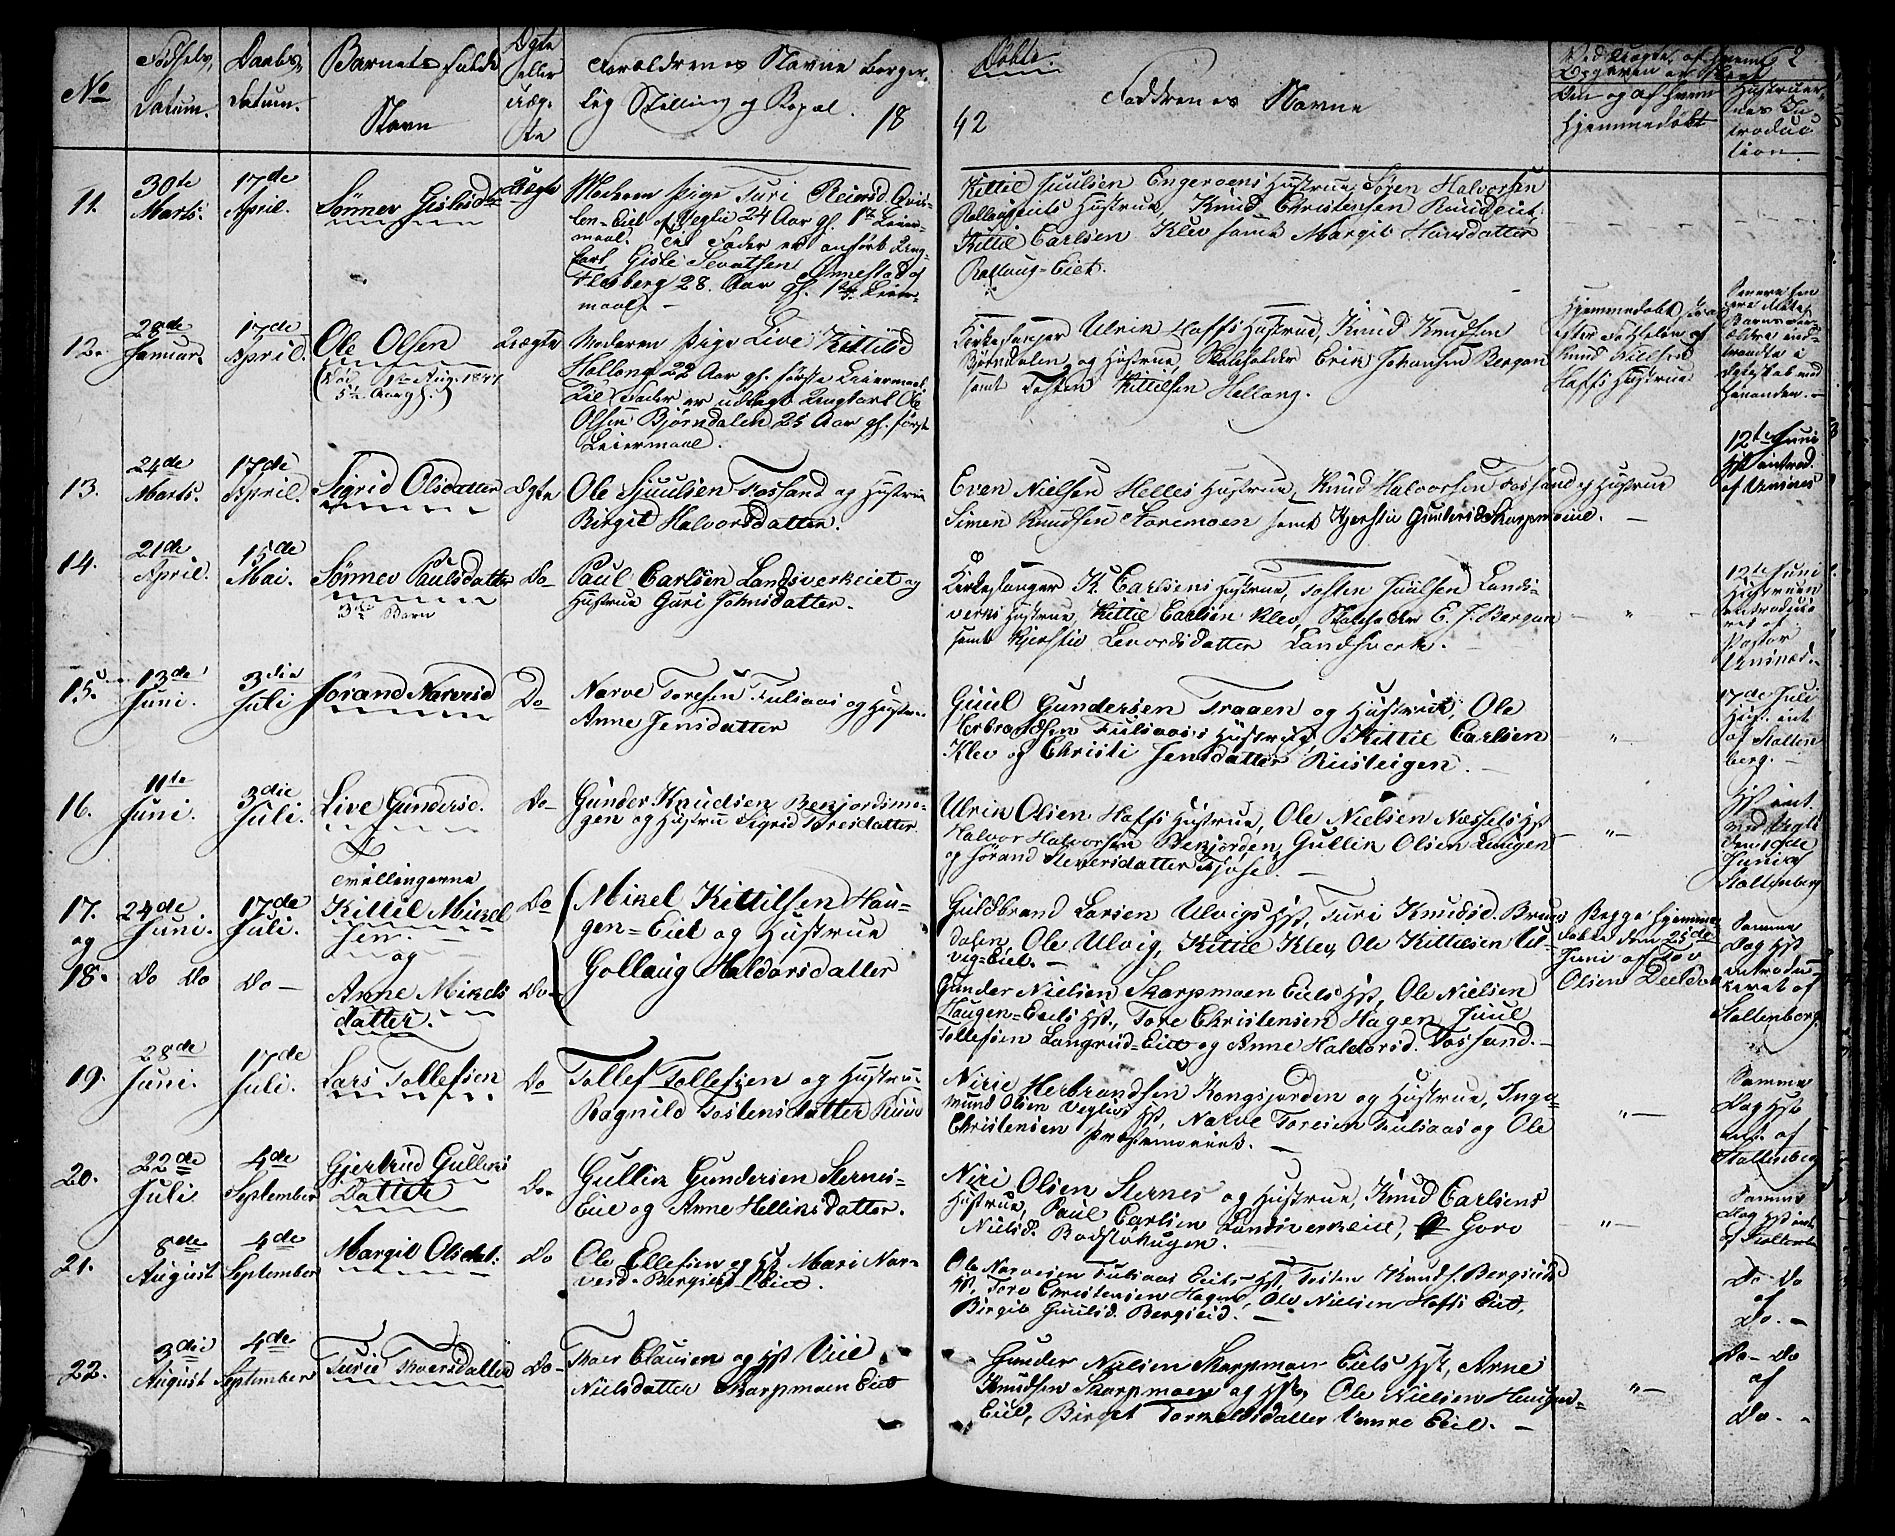 No
Fødsels Datum.
Daabs Datum.
Barnets fulde Navn
Ægte eller Uægte
Forældrenes Navne borger-
lig Stilling og Bopæl.
18
42
Døbte
Faddrenes Navne
2
hjemmedøbt
11.
30te Marts.
17de April.
Sønnev Gislisdtr
Uægte
Moderen Pige Turi
Eiet af Vegli 24 Aar gl. 1ste Leier-
maal. Til Fader er anført Ung-
karl Gisle
Flesberg 28 Aar gl. 1ste Leier-
maal. –
Kittil Juulsen Engeroens Hustrue, Søren Halvorsen
Hustrue, Knud Christensen Ruudeiet,
Kittil Carlsen Klev samt Margit Hansdatter
Rollaug-Eiet.
12.
28de Januar.
17de April.
Ole Olsen
Uægte
Moderen Pige Live Kittilsd
22 Aar gl. første Leiermaal.
Til Fader er udlagt Ungkarl Ole
Olsen Bjørndalen 25 Aar gl. første
Leiermaal.
Kirkesanger Ulrik Hoffs Hustrue, Knud Knudsen
Bjørndalen og Hustrue, Skoleholder Erik Johansen Bergan
samt Tosten Kittilsen Hellang.
Hjemmedøbt
Knud Nielsen
Hoffs Hustrue
13.
24de Marts.
17de April.
Sigrid Olsdatter
Ægte
Ole Sjuulsen Fossand og Hustrue
Birgit Halvorsdatter.
Even Nielsen Helles Hustrue, Knud Halvorsen Fossand og Hustrue
Simen Knudsen Foremoen samt Kjersti Gundersd Skarpmoeiet.
12te Juni
14.
21de April.
15de Mai.
Sønnev Paulsdatter
3die Barn
Do
Paul Carlsen Landsverkeiet og
Hustrue Guri Johnsdatter.
Kirkesanger K. Carlsens Hustrue, Tosten Juulsen Lands-
verks Hustrue, Kittil Carlsen Klev, Skoleholder E. J. Bergan
samt Kjersti Landsverk.
12te Juni
Hustruen
introduce-
ret af
Pastor
15.
13de Juni.
3die Juli
Jørand Narvesd
Do
Narve Toresen Fulsaas og Hustrue
Anne Jensdatter
Guul Gundersen Traaen og Hustrue, Ole
Herbrandsen Fulsaas's Hustrue, Kittil Carlsen
Klev og Christi Jensdatter Rusteigen. –
17de Juli
Hus. int
af Stolten
berg. –
16.
11te Juni.
3die Juli.
Live Gundersd.
Do
Gunder Knudsen Benjordsme-
gen og Hustru Sigrid Toresdatter
Ulrik Olsen Hoffs Hustrue, Ole Nielsen Næssets Hst
Halvor Halvorsen Benjorden, Gullik Olsen Lingen
og Jørand Sieversdatter Tjøse. –
Hst int.
ved Vegli
den 19de
Juni af
Stoltenberg
17. og 18.
24de Juni.
Do Do
17de Juli.
Do –
Tvillingerne
Kittil Mikel
sen.
og
Anne Mikels
datter.
Do
Do
Mikel Kittilsen Hau-
gen-Eiet og Hustrue
Gollaug Haldorsdatter
Guldbrand Larsen Ulvigs Hst, Turi Knudsd. Bruus
dalen, Ole Ulvig, Kittil Klev, Ole Kittilsen Ul-
vig-Eiet. –
Gunder Nielsen Skarpmoen Eiets Hst, Ole Nielsen
Haugen-Eiets Hst, Tore Christensen Hagen, Juul
Tollefsen Langrud-Eiet og Anne Haldorsd. Fossand. –
Begge hjemme
døbte den 25de
Juni af Tov
Olsen
Samme
Dag Hst
introdu-
ceret af
Stoltenberg
19.
28de Juni.
17de Juli.
Lars Tollefsen
Do
Tollef Tollefsen og Hustrue
Ragnild Tostensdatter Ruud
Nirie Herbrandsen Kongsjorden og Hustrue, Inge-
mund Olsen Veglis Hst, Narve Toresen Fulsaas og Ole
Christensen
Samme
Dag Hst
int. af
Stoltenberg
20.
22de Juli
4de September
Gjertrud Gulliks
Datter
Do.
Gullik Gundersen Sternes-
Eiet og Anne Helliksdatter.
Niri Olsen Sternes og Hustrue, Knud Carlsens
Hustrue, Paul Carlsen Landsverkeiet, Goro
Nielsd. Badstøhugen. –
Samme
Dag Hst int
af Stoltenb
21.
8de August
4de September
Margit Olsdat:
Do
Ole Ellefsen og Hst Mari Nar-
vesd. Bergseid Eiet.
Ole Narvesen Fulsaas Eiets Hst, Tosten Knuds. Bergseids
Hst, Tore Christensen Hagen, Ole Nielsen Hoffs Eiet,
Birgit Guulsd. Bergseid. –
Do Do
af
Do. –
22.
3die August
4de September
Turie Thoersdatter
Do
Thoer Clausen og Hst
Nielsdatter Skarpmoen Eiet
Gunder Nielsen Skarpmoen Eiets Hst, Arne
Knudsen Skarpmoen og Hst, Ole Nielsen Haugen-
Eiet, Birget Torkelsdatter Eiet. –
Do – Do
af
Do. –